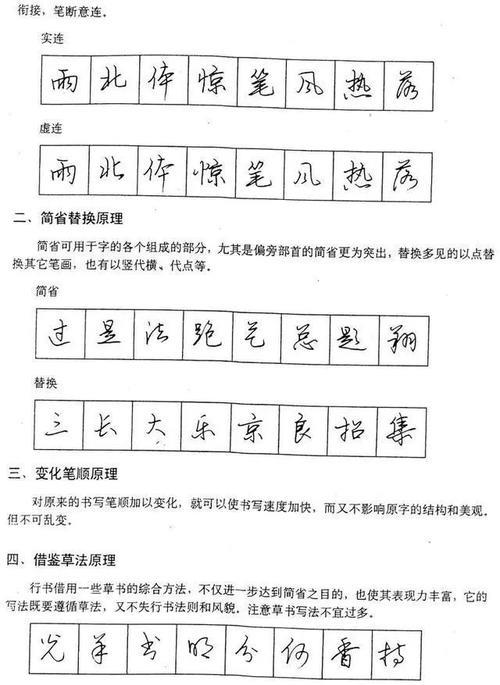 衔接，笔断意连。
实连
雨 北 体 惊 笔 风 热 落
虚连
雨 北 体 惊 笔 风 热 落
二、简省替换原理
简省可用于字的各个组成的部分，尤其是偏旁部首的简省更为突出，替换多见的以点替
换其它笔画，也有以竖代横、代点等。
简省
过 是 法 跑 艺 总 题 翔
替换
三 长 大 乐 京 良 招 集
三、变化笔顺原理
对原来的书写笔顺加以变化，就可以使书写速度加快，而又不影响原字的结构和美观。
但不可乱变。
四、借鉴草法原理
行书借用一些草书的综合方法，不仅进一步达到简省之目的，也使其表现力丰富，它的
写法既要遵循草法，又不失行书法则和风貌。注意草书写法不宜过多。
光 羊 书 明 分 何 香 持